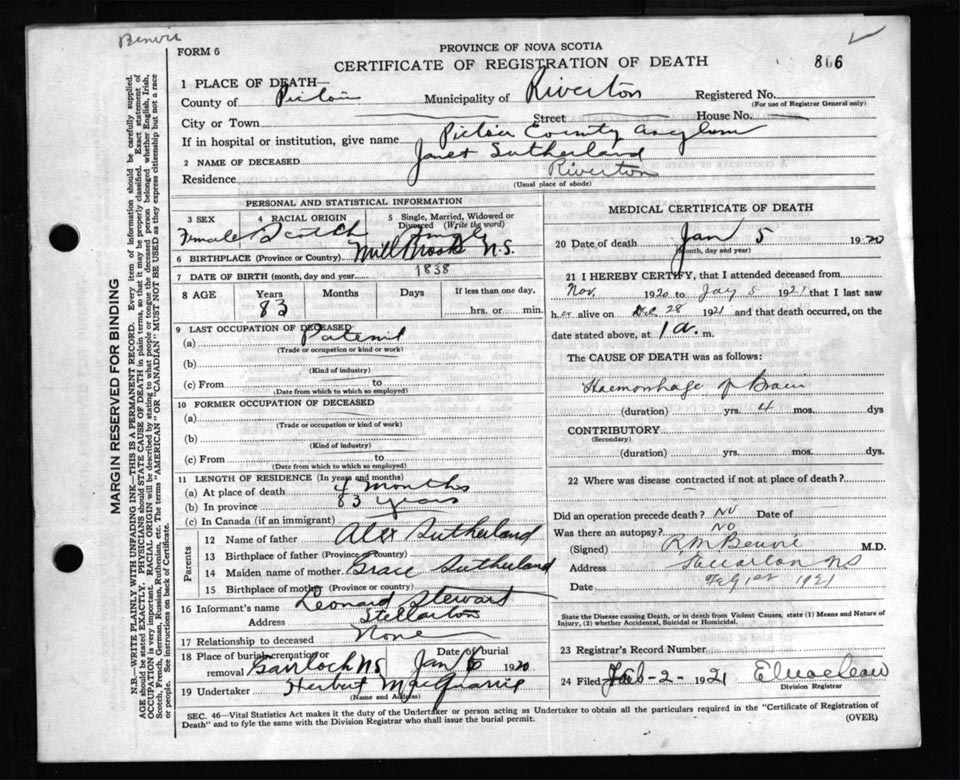 Benvie
FORM 6
PROVINCE OF NOVA SCOTIA
CERTIFICATE OF REGISTRATION OF DEATH
866
1 PLACE OF DEATH—
County of Pictou Municipality of Riverton Registered No.
(For use of Registrar General only)
City or Town Street House No.
If in hospital or institution, give name Pictou County Asylum
2 NAME OF DECEASED Janet Sutherland
Residence Riverton
(Usual place of abode)
PERSONAL AND STATISTICAL INFORMATION
3 SEX 4 RACIAL ORIGIN 5 Single, Married, Widowed or Divorced (Write the word)
Female Scotch Single
6 BIRTHPLACE (Province or Country) Mill Brook N.S.
7 DATE OF BIRTH (month, day and year) 1838
8 AGE Years Months Days If less than one day,
83 hrs. or min.
9 LAST OCCUPATION OF DECEASED
(a)
(Trade or occupation or kind or work)
(b)
(Kind of industry)
(c) From to
(Date from which to which so employed)
10 FORMER OCCUPATION OF DECEASED
(a)
(Trade or occupation or kind of work)
(b)
(Kind of industry)
(c) From to
(Date from which to which so employed)
11 LENGTH OF RESIDENCE (In years and months)
(a) At place of death 4 months
(b) In province 83 years
(c) In Canada (if an immigrant)
Parents
12 Name of father Alex Sutherland
13 Birthplace of father (Province or country)
14 Maiden name of mother Grace Sutherland
15 Birthplace of mother (Province or country)
16 Informant's name Leonard Stewart
Address Stellarton
17 Relationship to deceased None
18 Place of burial, cremation or removal Date of burial
Gairloch NS Jan 6 1920
19 Undertaker Herbert MacQuarrie
(Name and Address)
MEDICAL CERTIFICATE OF DEATH
20 Date of death Jan 5 1920
(Month, day and year)
21 I HEREBY CERTIFY, that I attended deceased from
Nov. 1920 to Jay 5 1921 that I last saw
her alive on Dec 28 1921 and that death occurred, on the
date stated above, at 1 a. m.
The CAUSE OF DEATH was as follows:
Haemorrhage of Brain
(duration) yrs. 4 mos. dys
CONTRIBUTORY
(Secondary)
(duration) yrs. mos. dys.
22 Where was disease contracted if not at place of death?
Did an operation precede death? No Date of
Was there an autopsy? No
(Signed) R.M. Benvie M.D.
Address NS
Date 1921
State the Disease causing Death, or in death from Violent Causes, state (1) Means and Nature of
Injury, (2) whether Accidental, Suicidal or Homicidal.
23 Registrar's Record Number
24 Filed Feb-2- 1921
Division Registrar
SEC. 46—Vital Statistics Act makes it the duty of the Undertaker or person acting as Undertaker to obtain all the particulars required in the "Certificate of Registration of
Death" and to fyle the same with the Division Registrar who shall issue the burial permit.
(OVER)
MARGIN RESERVED FOR BINDING
N.B.—WRITE PLAINLY WITH UNFADING INK—THIS IS A PERMANENT RECORD. Every item of information should be carefully supplied.
AGE should be stated EXACTLY. PHYSICIANS should STATE CAUSE OF DEATH in plain terms, so that it may be properly classified. Exact statement of
OCCUPATION is very important. RACIAL ORIGIN will be described by stating to what people or tongue the deceased person belonged whether English, Irish,
Scotch, French, German, Russian, Ruthenian, etc. The terms "AMERICAN" OR "CANADIAN" MUST NOT BE USED as they express citizenship but not a race
or people. See instructions on back of Certificate.